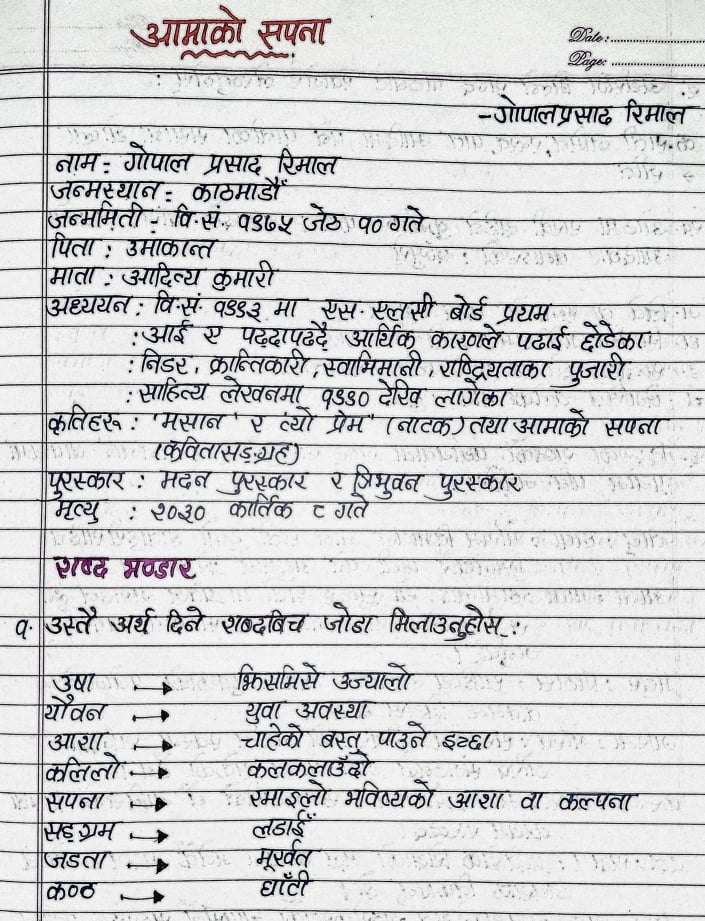 आमाको सपना
Date:
Page:
-गोपालप्रसाद रिमाल
नाम: गोपाल प्रसाद रिमाल
जन्मस्थान: काठमाडौं
जन्ममिती: वि.सं. १९७५ जेठ १० गते
पिता: उमाकान्त
माता: आदित्य कुमारी
अध्ययन: वि.सं १९९२ मा एस.एलसी बोर्ड प्रथम
: आई ए पढ्दापढ्दै आर्थिक कारणले पढाई छोडेका
: निडर, क्रान्तिकारी, स्वाभिमानी, राष्ट्रियताका पुजारी
: साहित्य लेखनमा १९९० देखि लागेका
कृतिहरू: 'मसान' र 'त्यो प्रेम' (नाटक) तथा आमाको सपना
(कवितासङ्ग्रह)
पुरस्कार: मदन पुरस्कार र त्रिभुवन पुरस्कार
मृत्यु : २०३० कार्तिक ८ गते
शब्द भण्डार
१. उस्तै अर्थ दिने शब्दबिच जोडा मिलाउनुहोस्:
उषा → झिसमिसे उज्यालो
यौवन → युवा अवस्था
आशा → चाहेको बस्तु पाउने इच्छा
कलिलो → कलकलाउँदो
सपना → रमाइलो भविष्यको आशा वा कल्पना
सङ्ग्रम → लडाइँ
जडता → मूर्खत
कण्ठ → घाँटी